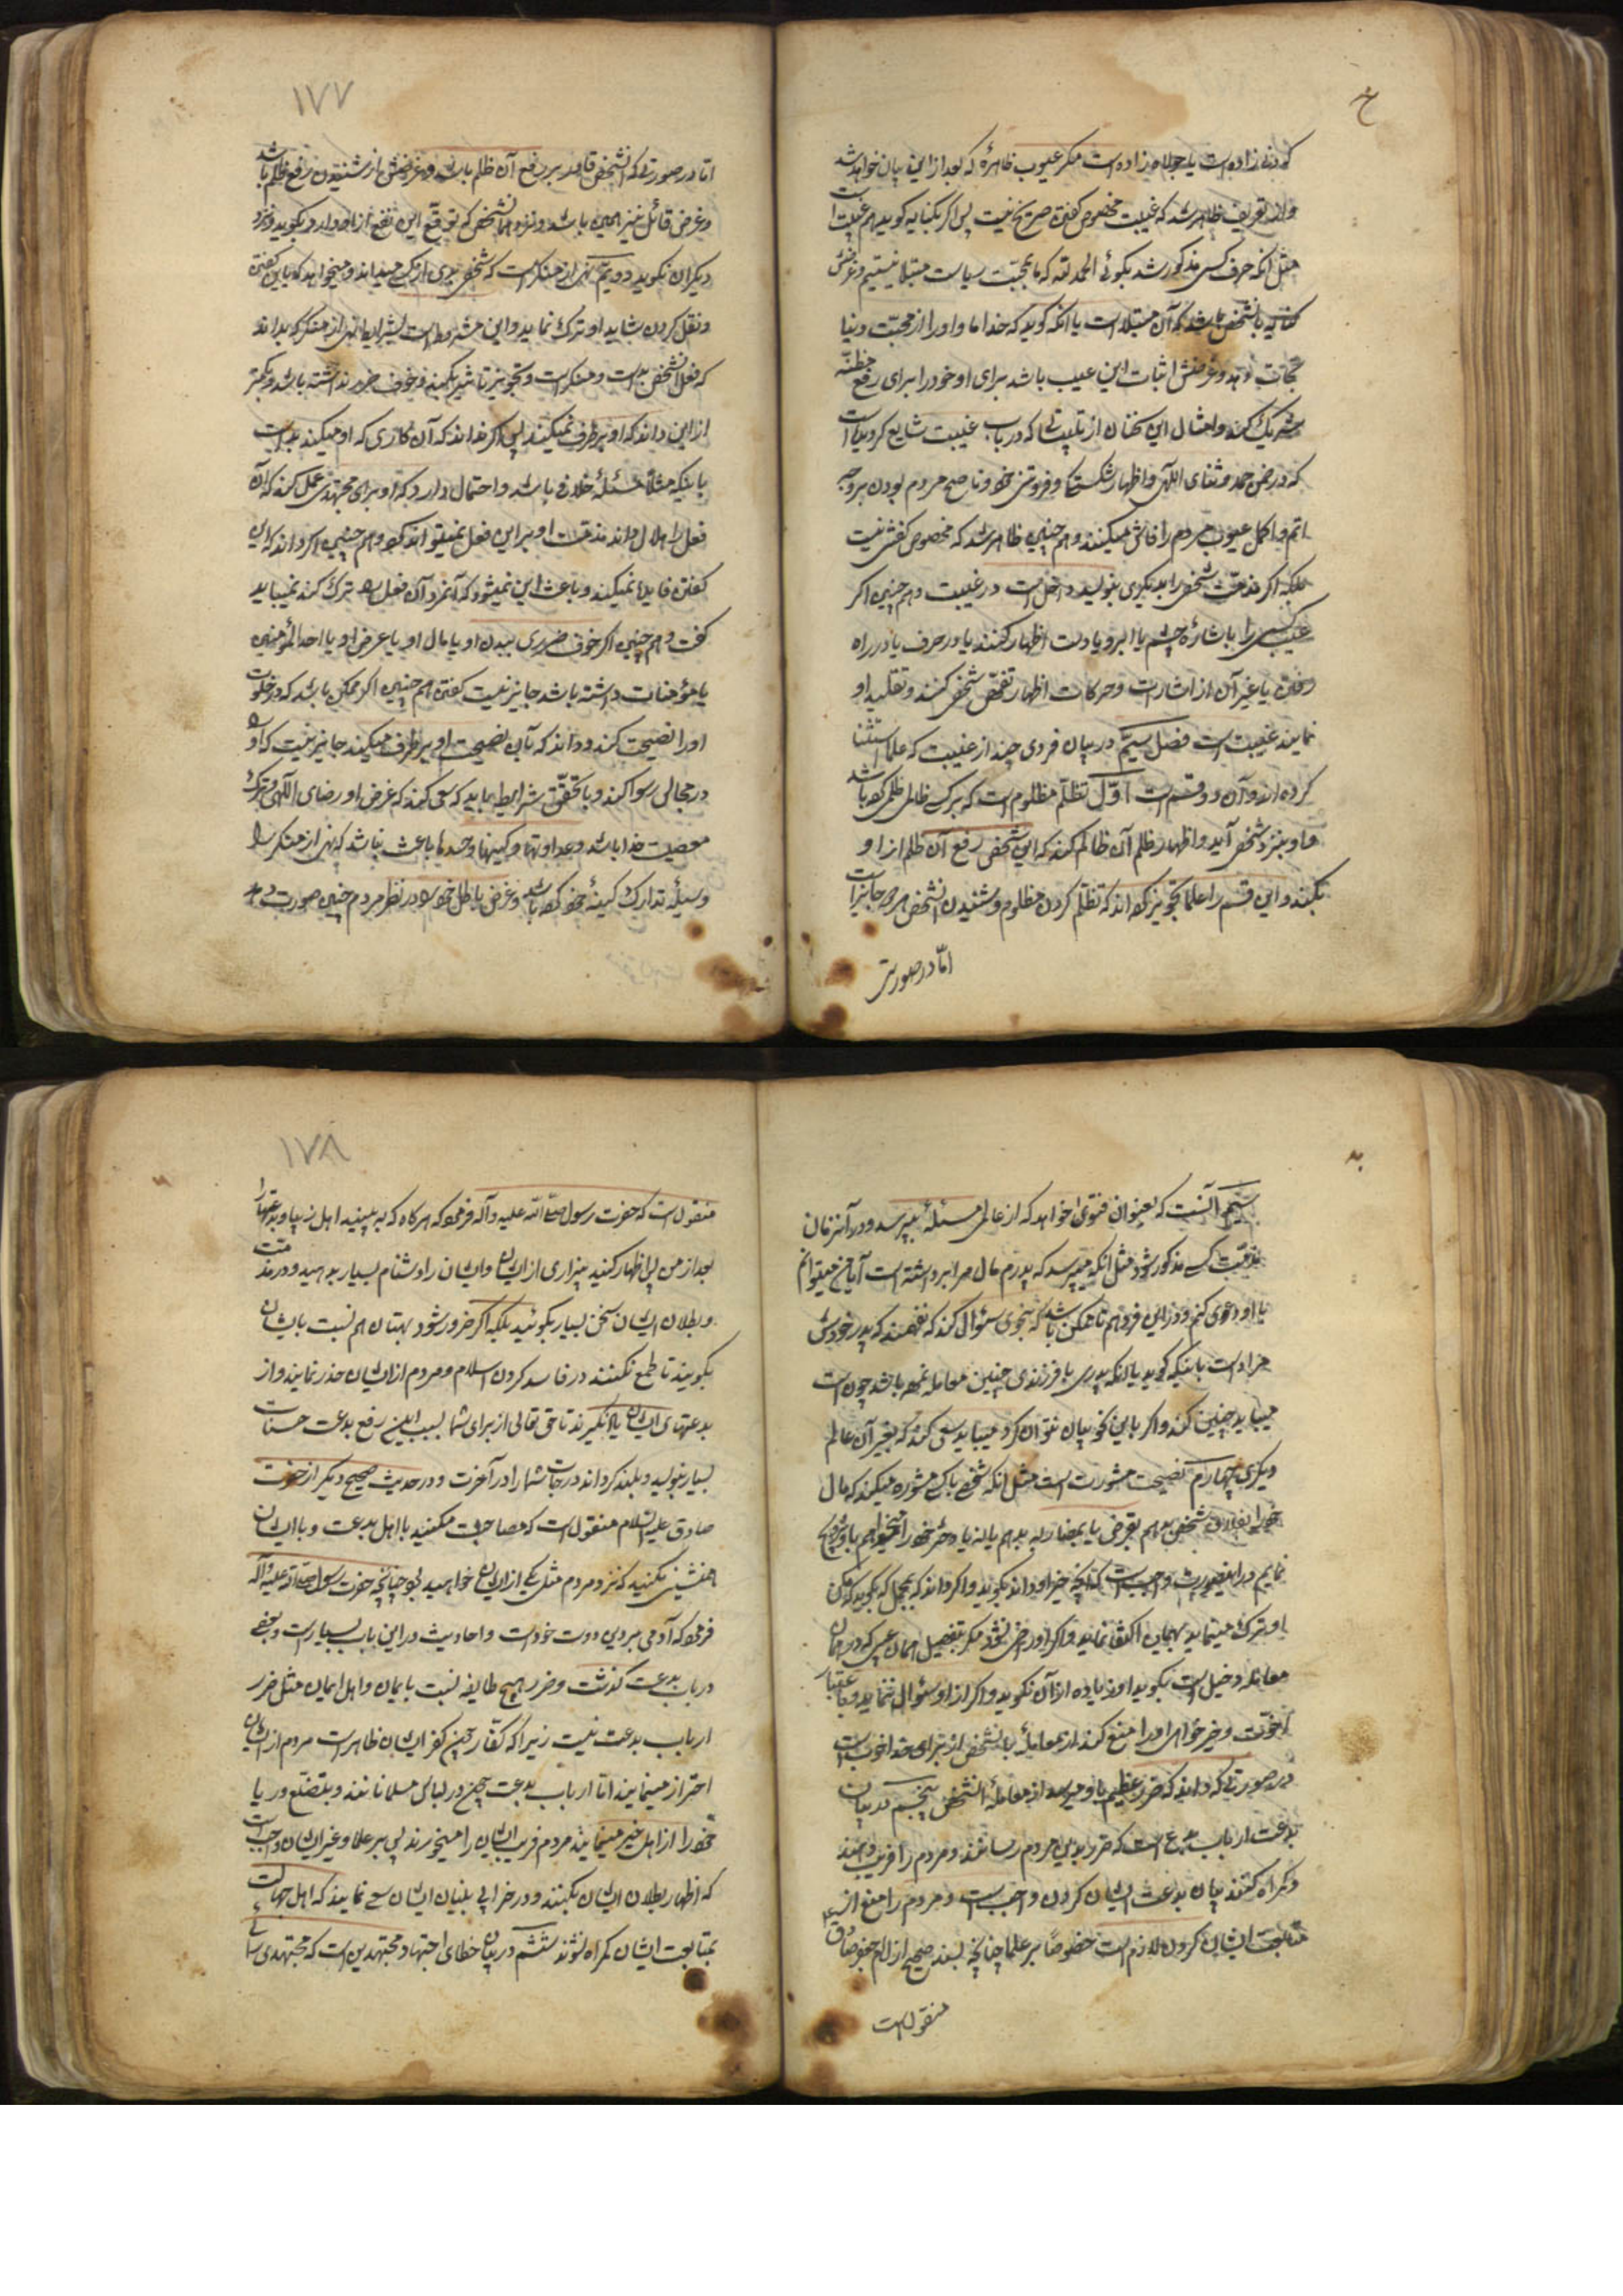 که دنی زاده است یا جولاه زاده است مگر عیوب ظاهرهٔ که بعد از این بیان خواهد شد
و از تعریف ظاهر شد که غیبت مخصوص گفتن صریح نیست پس اگر بکنایه گوید هم غیبت است
مثل آنکه حرف کسی مذکور شد بگوئی الحمد لله که ما بمحبّت ریاست مبتلا نیستیم و غرضش
کنایه بآنشخص باشد که آن مبتلا است یا آنکه گوید که خدا ما و او را از محبّت دنیا
نجات دهد و غرضش اثبات این عیب باشد برای او خود را برای رفع مظنّه
شریک کند و امثال این سخنان از تلبیساتی که در باب غیبت شایع گردیده است
که در ضمن حمد و ثنای اللهی و اظهار شکستگی و فروتنی خود و ناصح مردم بودن بر وجه
اتم و اکمل عیوب مردم را فاش میکنند و هم چنین ظاهر شد که مخصوص گفتن نیست
بلکه اگر مذمّت شخصی را بدیگری بنویسد داخل است در غیبت و هم چنین اگر
عیب کسی را باشارهٔ چشم یا ابرو یا دست اظهار کنند یا در حرف یا در راه
رفتن یا غیر آن از اشارات و حرکات اظهار نقص شخصی کنند و تقلید او
نمایند غیبت است فصل سیّم در بیان فردی چند از غیبت که علما استثنا
کرده اند و آن دو قسم است اوّل تظلّم مظلوم است که بر کسی ظالمی ظلمی کرده باشد
و او بنزد شخصی آید و اظهار ظلم آن ظالم کند که این شخص رفع آن ظلم از او
بکند و این قسم را علما تجویز کرده اند که تظلّم کردن مظلوم و شنیدن آنشخص هر دو جایز است
امّا در صورتی
۱۷۷
امّا در صورتی که آنشخص قادر بر رفع آن ظلم باشد و غرضش از شنیدن رفع ظلم باشد
و غرض قائل نیز همین باشد و نزد همان شخص که توقع این نفع از او دارد بگوید و نزد
دیگران نگوید دویم نهی از منکر است که شخصی بدی از کسی میداند و میخواهد که باین گفتن
و نقل کردن شاید او ترک نماید و این مشروط است بشرایط نهی از منکر که بداند
که فعل آنشخص بد است و منکر است و تجویز تاثیر بکند و خوف ضرر نداشته باشد و بکمتر
از این داند که او بر طرف نمیکند پس اگر نداند که آن کاری که او میکند بد است
باینکه مثلاً مسئلهٔ خلافی باشد و احتمال دارد که او برای مجتهدی عمل کند که آن
فعل را حلال داند مذمت او بر این فعل نمیتواند کرد و هم چنین اگر داند که این
گفتن فایده نمیکند و باعث این نمیشود که آنمرد آن فعل را ترک کند نمیباید
گفت و هم چنین اگر خوف ضرری ببدن او یا مال او یا عرض او یا احد المؤمنین
یا مؤمنات داشته باشد جایز نیست گفتن هم چنین اگر ممکن باشد که در خلوت
او را نصیحت کند و داند که بآن نصیحت او بر طرف میکند جایز نیست که او را
در مجالس رسوا کند و با تحقّق شرایط باید که سعی کند که غرض او رضای اللهی و ترک
معصیت خدا باشد و عداوتها و کینها و حسدها باعث نباشد که نهی از منکر را
وسیلهٔ تدارک کینهٔ خود کرده باشد و غرض باطل خود را در نظر مردم چنین صورت دهد
سیّم آنست که بعنوان فتوی خواهد که از عالمی مسئلهٔ بپرسد و در آنزمان
مذمّت کسی مذکور شود مثل آنکه میپرسد که پدرم مال مرا برداشته است آیا من میتوانم
با او دعوی کنم و در این فرد هم تا ممکن باشد که بنحوی سئوال کند که نفهمند که پدر خودش
مراد است باینکه گوید یا آنکه پدری با فرزندی چنین معامله نموده باشد چون است
میباید چنین کند و اگر باین نحو بیان نتوان کرد میباید سعی کند که بغیر آن عالم
دیگری چهارم نصیحت مشورت است مثل آنکه شخصی با کسی مشوره میکند که مال
خود را بفلان شخص بدهم بقرض یا بمضاربه بدهم یا نه یا دختر خود را میخواهم باو تزویج
نمایم در اینصورت واجب است که آنچه خیر او داند بگوید و اگر داند که بمجمل که بگوید که مکن
او ترک مینماید بهمان اکتفا نماید و اگر او راضی نشود مگر بتفصیل همان عیبی که در همان
معامله دخیل است بگوید و زیاده از آن نگوید و اگر از او سئوال ننماید و باعتبار
اخوّت و خیر خواهی او را منع کند از معاملهٔ با آنشخص از برای خدا خوب است
در صورتی که داند که ضرر عظیم باو میرسد از معاملهٔ آنشخص پنجم در بیان
بدعت ارباب بدع است که ضرر بدین مردم رسانند و مردم را فریب دهند
و گمراه کنند بیان بدعت ایشان کردن واجب است و مردم را منع از
متابعت ایشان کردن لازم است خصوصاً بر علما چنانچه بسند صحیح از امام جعفر صادق ع
منقول است
۱۷۸
منقول است که حضرت رسول صلی الله علیه و آله فرمود که هر گاه که به بینید اهل ریبها و بدعتها را
بعد از من پس اظهار کنید بیزاری از ایشان و ایشان را دشنام بسیار بدهید و در مذمت
و بطلان ایشان سخن بسیار بگوئید بلکه اگر ضرور شود بهتان هم نسبت بایشان
بگویند تا طمع نکنند در فاسد کردن اسلام و مردم از ایشان حذر نمایند و از
بدعتهای ایشان یاد نگیرند تا حق تعالی از برای شما بسبب این رفع بدعت حسنات
بسیار بنویسد و بلند گرداند درجات شما را در آخرت و در حدیث صحیح دیگر از حضرت
صادق علیه السلام منقول است که مصاحبت مکنید با اهل بدعت و با ایشان
همنشینی مکنید که نزد مردم مثل یکی از ایشان خواهید بود چنانچه حضرت رسول صلی الله علیه و آله
فرمود که آدمی بر دین دوست خود است و احادیث در این باب بسیار است و بعضی
در باب بدعت گذشت و ضرر هیچ طایفه نسبت بایمان و اهل ایمان مثل ضرر
ارباب بدعت نیست زیرا که کفّار چون کفر ایشان ظاهر است مردم از ایشان
احتراز مینمایند امّا ارباب بدعت چون در لباس مسلمانانند و بتصنّع و ریا
خود را از اهل خیر مینمایند مردم فریب ایشان را میخورند پس بر علما و غیر ایشان واجب است
که اظهار بطلان ایشان بکنند و در خرابی بنیان ایشان سعی نمایند که اهل جهالت
بمتابعت ایشان گمراه نشوند ششم در بیان خطای اجتهاد مجتهدین است که مجتهدی